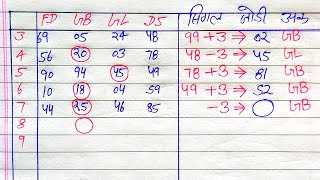 FD GB GL DS सिंगल जोड़ी अंक
3 69 05 24 48 99+3⇒ 02 GB
4 56 20 03 78 48-3⇒ 45 GL
5 90 94 45 49 78+3⇒ 81 GB
6 10 18 04 59 49+3⇒ 52 GB
7 44 25 46 85 -3⇒ GB
8
9